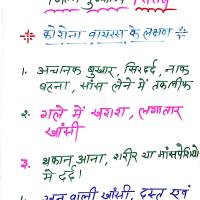 कोरोना वायरस के लक्षण
1. अचानक बुखार, सिरदर्द, नाक
बहना, सांस लेने में तकलीफ
2. गले में खराश, लगातार
खाँसी
3. थकान आना, शरीर या मांसपेशियो
में दर्द।
खाँसी, दस्त एवं